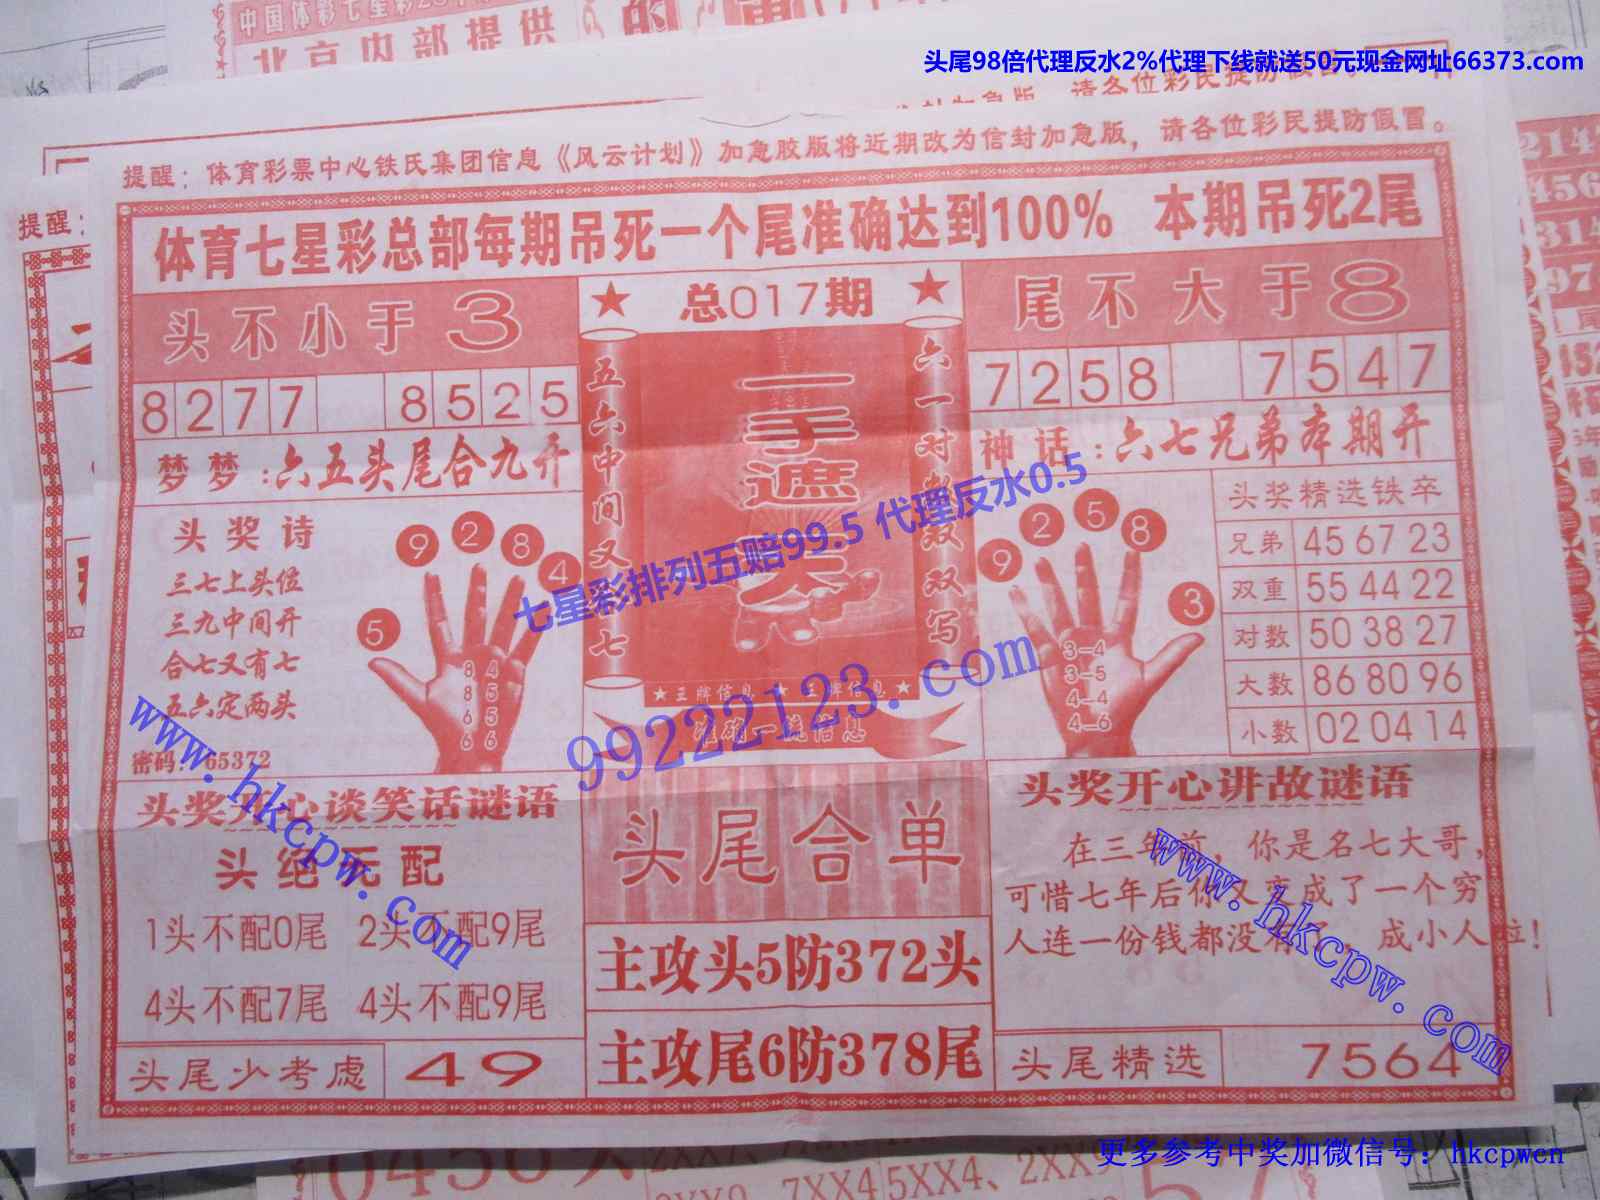 中国体彩七星彩
北京内部提供
头尾98倍代理反水2%代理下线就送50元现金网址66373.com
请各位彩民提防假冒。
提醒：体育彩票中心铁氏集团信息《风云计划》加急胶版将近期改为信封加急版，请各位彩民提防假冒。
提醒：
体育七星彩总部每期吊死一个尾准确达到100% 本期吊死2尾
头不小于3
★ 总017期 ★
尾不大于8
8277 8525
7258 7547
梦梦：六五头尾合九开
神话：六七兄弟本期开
五六中间又七
一手遮天
六一对数双双写
头奖诗
三七上头位
三九中间开
合七又有七
五六定两头
密码：65372
9 2 8 4
5
8 4
8 5
6 5
6 6
9 2 5 8
3
3—4
3—5
4—4
4—6
头奖精选铁卒
兄弟 45 67 23
双重 55 44 22
对数 50 38 27
大数 86 80 96
小数 02 04 14
★王牌信息★王牌信息★
准确一流信息
七星彩排列五赔99.5 代理反水0.5
99222123.com
www.hkcpw.com
www.hkcpw.com
头奖开心谈笑话谜语
头绝无配
1头不配0尾 2头不配9尾
4头不配7尾 4头不配9尾
头尾少考虑 49
头尾合单
主攻头5防372头
主攻尾6防378尾
头奖开心讲故谜语
在三年前，你是名七大哥，
可惜七年后你又变成了一个穷
人连一份钱都没有了，成小人啦！
头尾精选 7564
更多参考中奖加微信号：hkcpwcn
7XX4 5XX4、2XX9